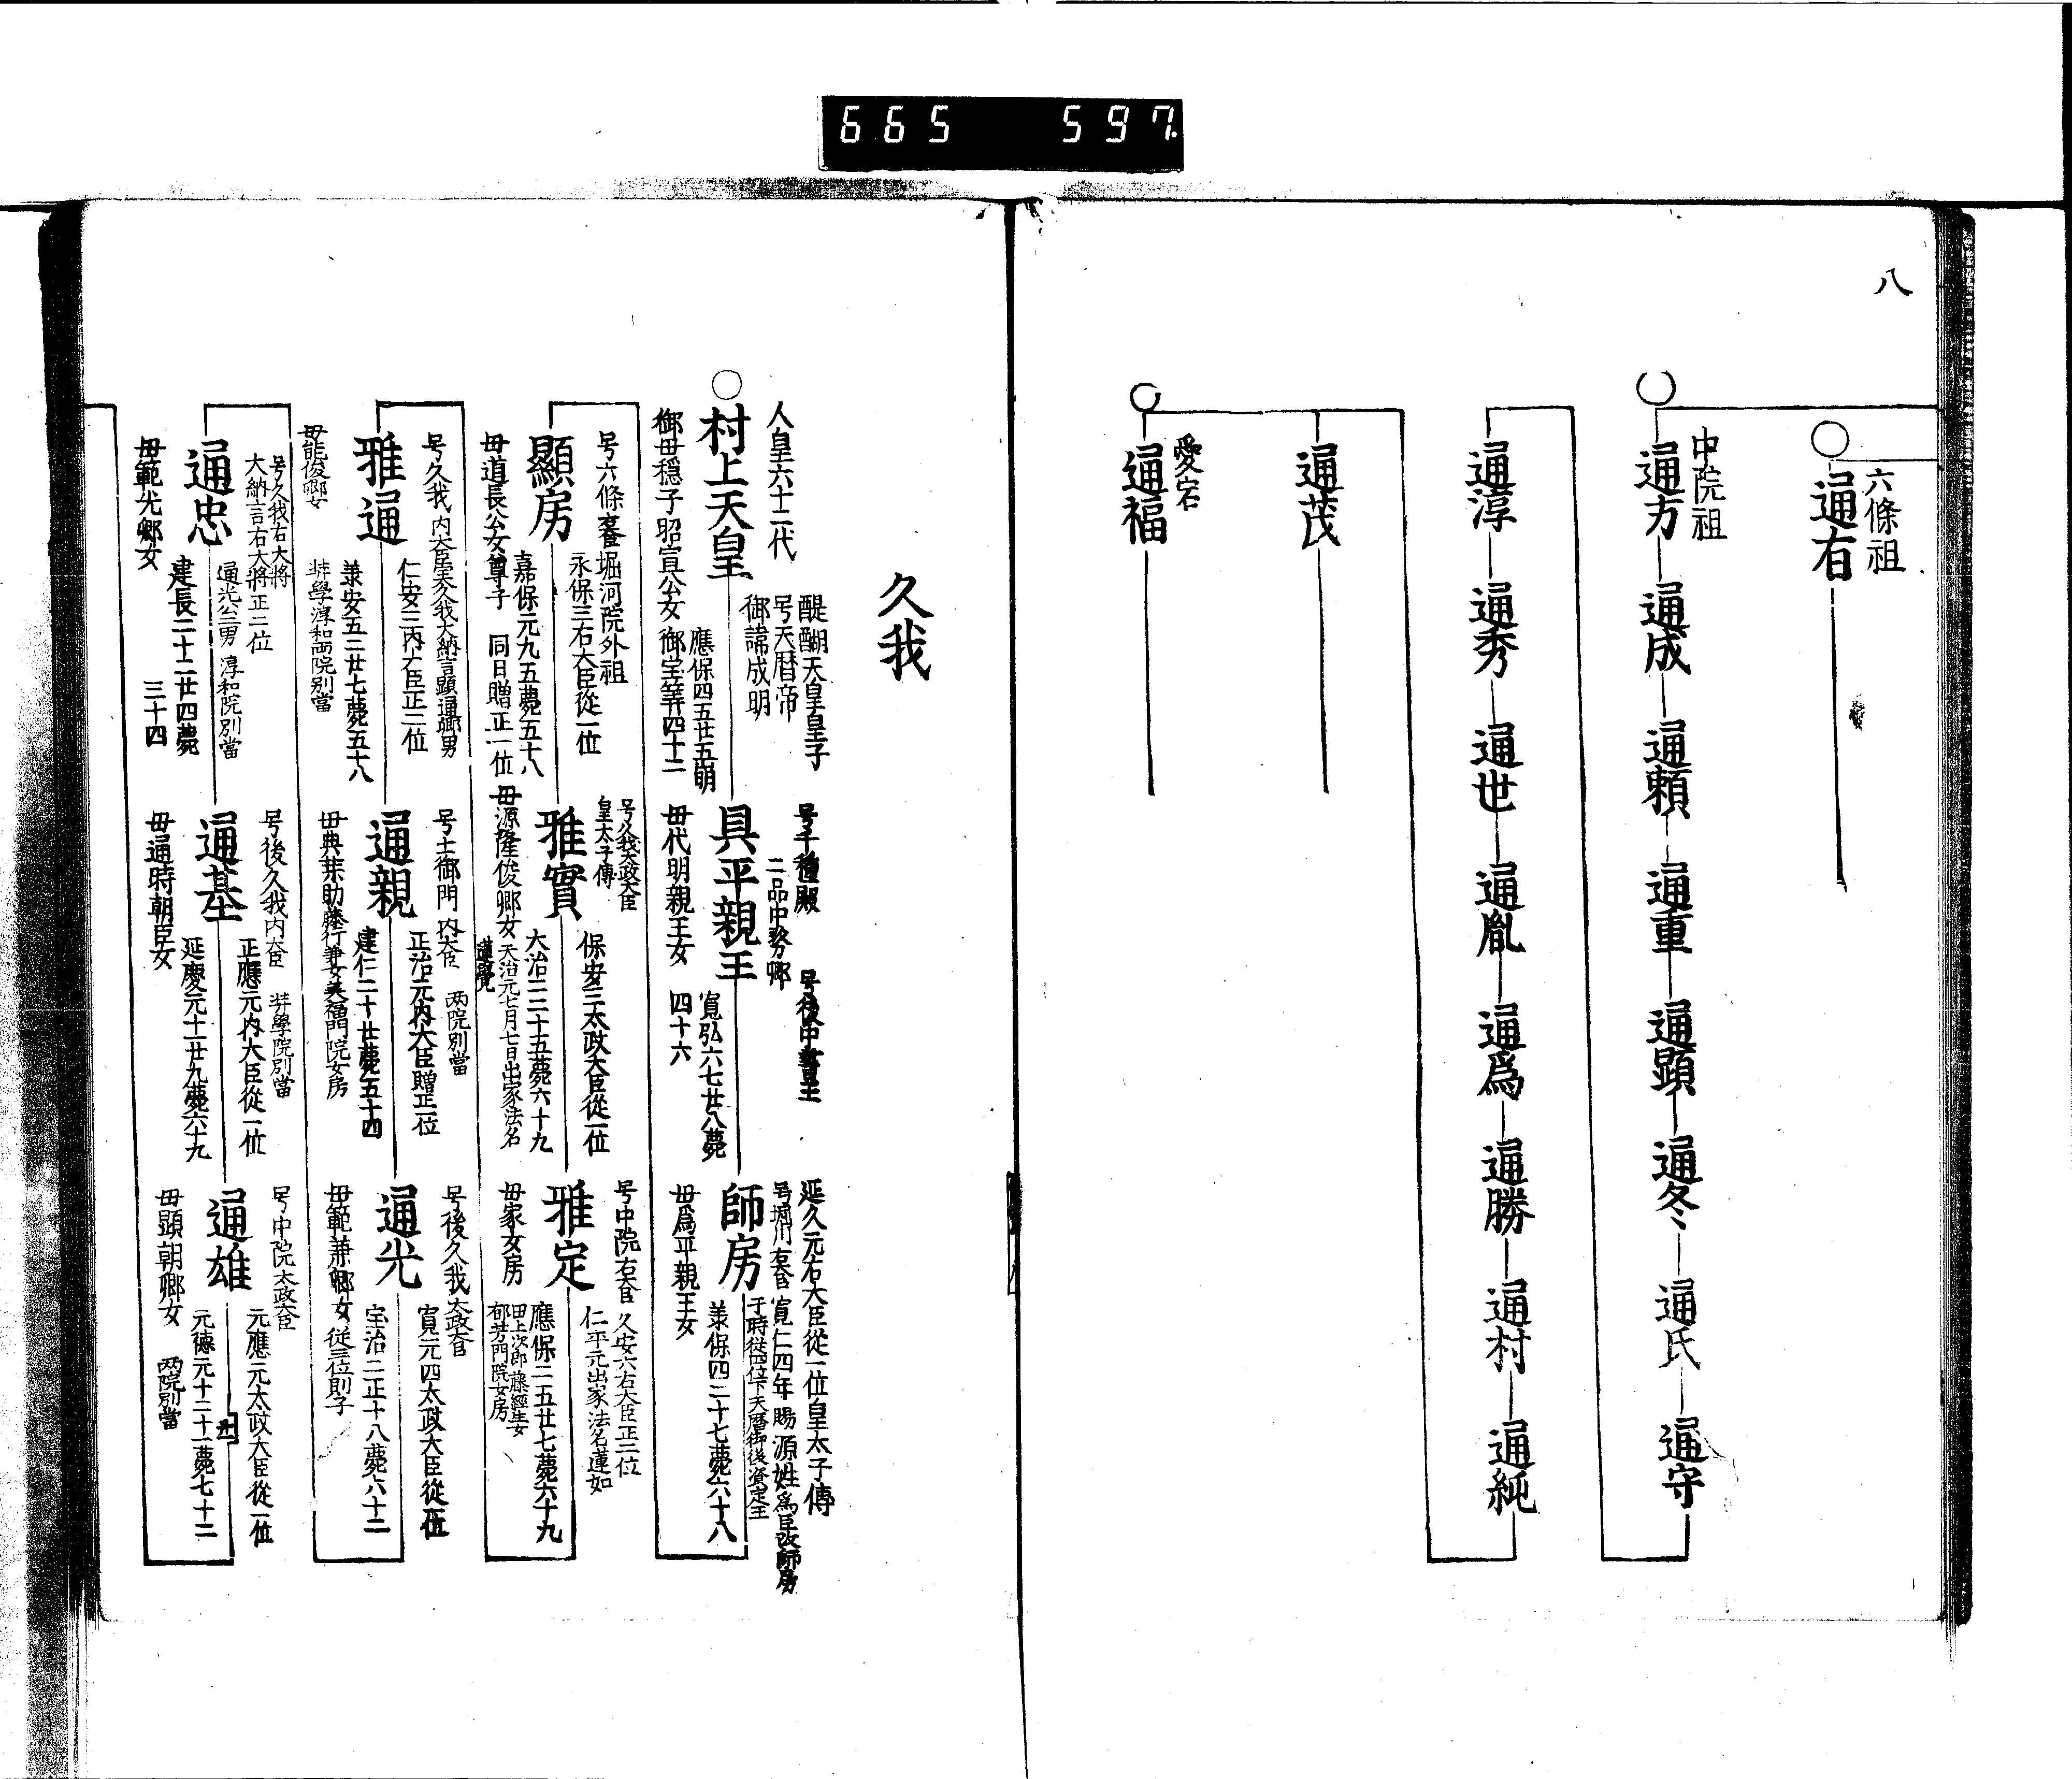 665 597.
八
六條祖
通有
中院祖
通方
通成
通頼
通重
通顕
通冬
通氏
通守
通淳
通秀
通世
通胤
通爲
通勝
通村
通純
通茂
愛宕
通福
久我
人皇六十二代
村上天皇
御母穏子昭宣公女
醍醐天皇皇子
号天暦帝
御諱成明
應保四五廿五崩
御宝筭四十二
号千種殿
号後中書王
二品中務卿
具平親王
母代明親王女
寛弘六七廿八薨
四十六
延久元右大臣從一位皇太子傳
号堀川右大臣
寛仁四年賜源姓為臣改師房
于時從四位下天暦御後資定王
師房
母爲平親王女
羕保四二十七薨六十八
号六條
堀河院外祖
永保三右大臣從一位
顯房
母道長公女尊子
嘉保元九五薨五十八
同日贈正一位
号久我太政大臣
皇太子傳
保安三太政大臣從一位
雅實
母源隆俊卿女
大治二二十五薨六十九
天治元七月七日出家法名
蓮覺
号中院右大臣
久安六右大臣正二位
仁平元出家法名蓮如
雅定
母家女房
應保二五廿七薨六十九
田上次郎藤經生女
郁芳門院女房
号久我内大臣
実久我大納言顕通卿男
仁安三内大臣正二位
雅通
羕安五二廿七薨五十八
母能俊卿女
弉學淳和両院別當
号土御門内大臣
両院別當
正治元内大臣贈正一位
通親
建仁二十廿薨五十四
母典薬助藤行兼女美福門院女房
号後久我太政大臣
寛元四太政大臣從一位
通光
宝治二正十八薨六十二
母範兼卿女從三位則子
号久我右大将
大納言右大将正二位
通光公三男
淳和院別當
通忠
母範光卿女
建長二十二廿四薨
三十四
号後久我内大臣
弉學院別當
正應元内大臣從一位
通基
母通時朝臣女
延慶元十一廿九薨六十九
号中院太政大臣
元應元太政大臣從一位
通雄
母顕朝卿女
元徳元十二十一薨七十二
両院別當